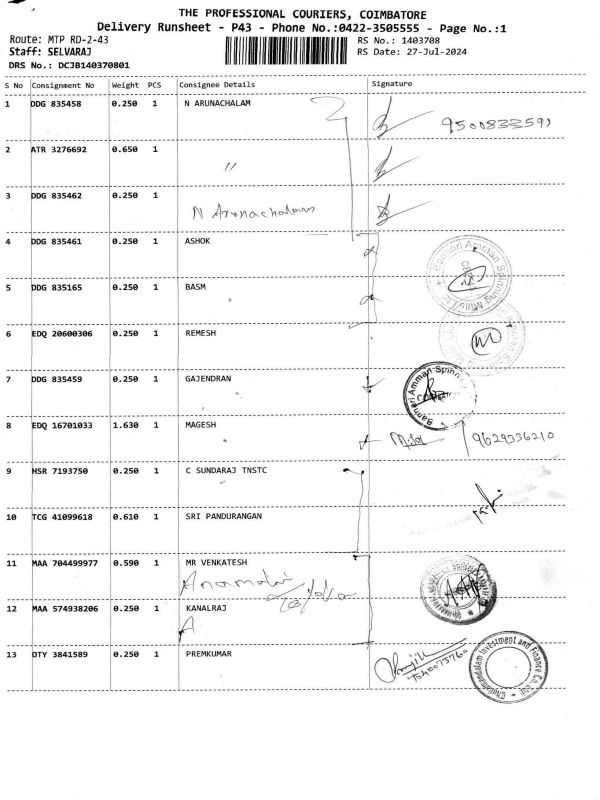 THE PROFESSIONAL COURIERS, COIMBATORE
Delivery Runsheet - P43 - Phone No.:0422-3505555 - Page No.:1
Route: MTP RD-2-43 RS No.: 1403708
Staff: SELVARAJ RS Date: 27-Jul-2024
DRS No.: DCJB140370801
S No Consignment No Weight PCS Consignee Details Signature
1 DDG 835458 0.250 1 N ARUNACHALAM
2 ATR 3276692 0.650 1 "
3 DDG 835462 0.250 1
N Arunachalam
4 DDG 835461 0.250 1 ASHOK
Bannari Amman Spinning Mills Ltd
5 DDG 835165 0.250 1 BASM
6 EDQ 20600306 0.250 1 REMESH
7 DDG 835459 0.250 1 GAJENDRAN
Bannari Amman Spinn
8 EDQ 16701033 1.630 1 MAGESH
9629336210
9 HSR 7193750 0.250 1 C SUNDARAJ TNSTC
10 TCG 41099618 0.610 1 SRI PANDURANGAN
11 MAA 704499977 0.590 1 MR VENKATESH
12 MAA 574938206 0.250 1 KANALRAJ
13 OTY 3841589 0.250 1 PREMKUMAR
Cholamandalam Investment and Finance Co. Ltd